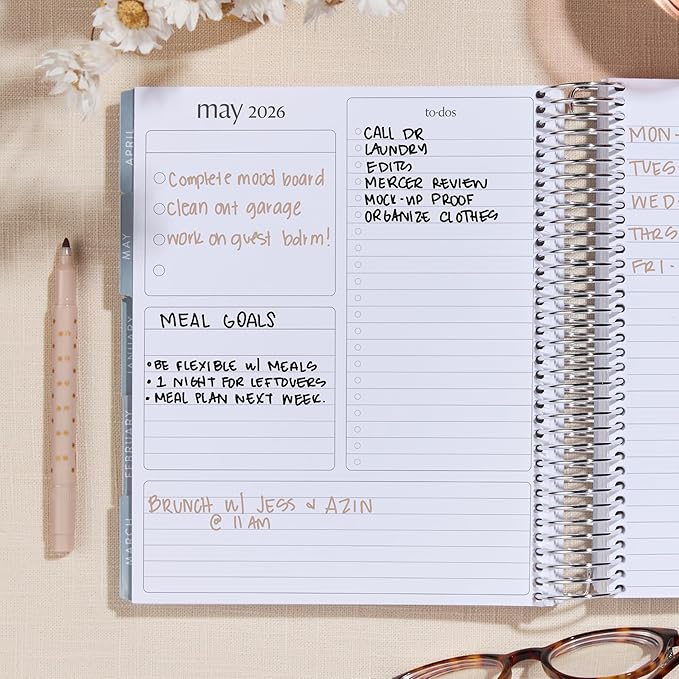 may 2026
Complete mood board
Clean out garage
work on guest bdrm!
MEAL GOALS
• BE FLEXIBLE w/ MEALS
• 1 NIGHT FOR LEFTOVERS
• MEAL PLAN NEXT WEEK.
to-dos
CALL DR
LAUNDRY
EDITS
MERCER REVIEW
MOCK-UP PROOF
ORGANIZE CLOTHES
BRUNCH W/ JESS & AZIN
@ 11 AM
APRIL
MAY
JANUARY
FEBRUARY
MARCH
MON-
TUES-
WED-
THRS-
FRI-